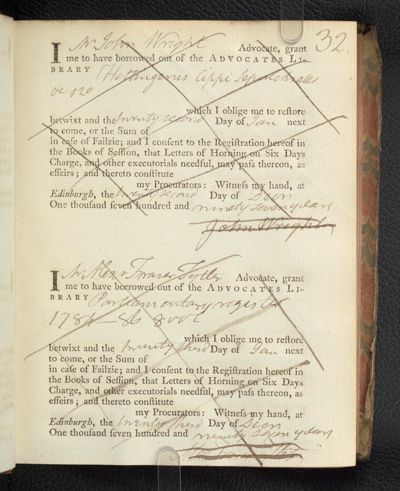 32.
I Mr John Wright Advocate, grant
me to have borrowed out of the ADVOCATES LI-
BRARY Hottingeri Cippi Sepulchrales
8vo 120
which I oblige me to restore
betwixt and the twenty second Day of Jan next
to come, or the Sum of
in case of Failzie; and I consent to the Registration hereof in
the Books of Session, that Letters of Horning on Six Days
Charge, and other executorials needful, may pass thereon, as
effeirs; and thereto constitute
my Procurators: Witness my hand, at
Edinburgh, the twenty second Day of Decr
One thousand seven hundred and ninety seven years
John Wright
I Mr Alexr Fraser Tytler Advocate, grant
me to have borrowed out of the ADVOCATES LI-
BRARY Parliamentary register
1784-86 8 vols
which I oblige me to restore
betwixt and the twenty third Day of Jan next
to come, or the Sum of
in case of Failzie; and I consent to the Registration hereof in
the Books of Session, that Letters of Horning on Six Days
Charge, and other executorials needful, may pass thereon, as
effeirs; and thereto constitute
my Procurators: Witness my hand, at
Edinburgh, the twenty third Day of Decr
One thousand seven hundred and ninety seven years